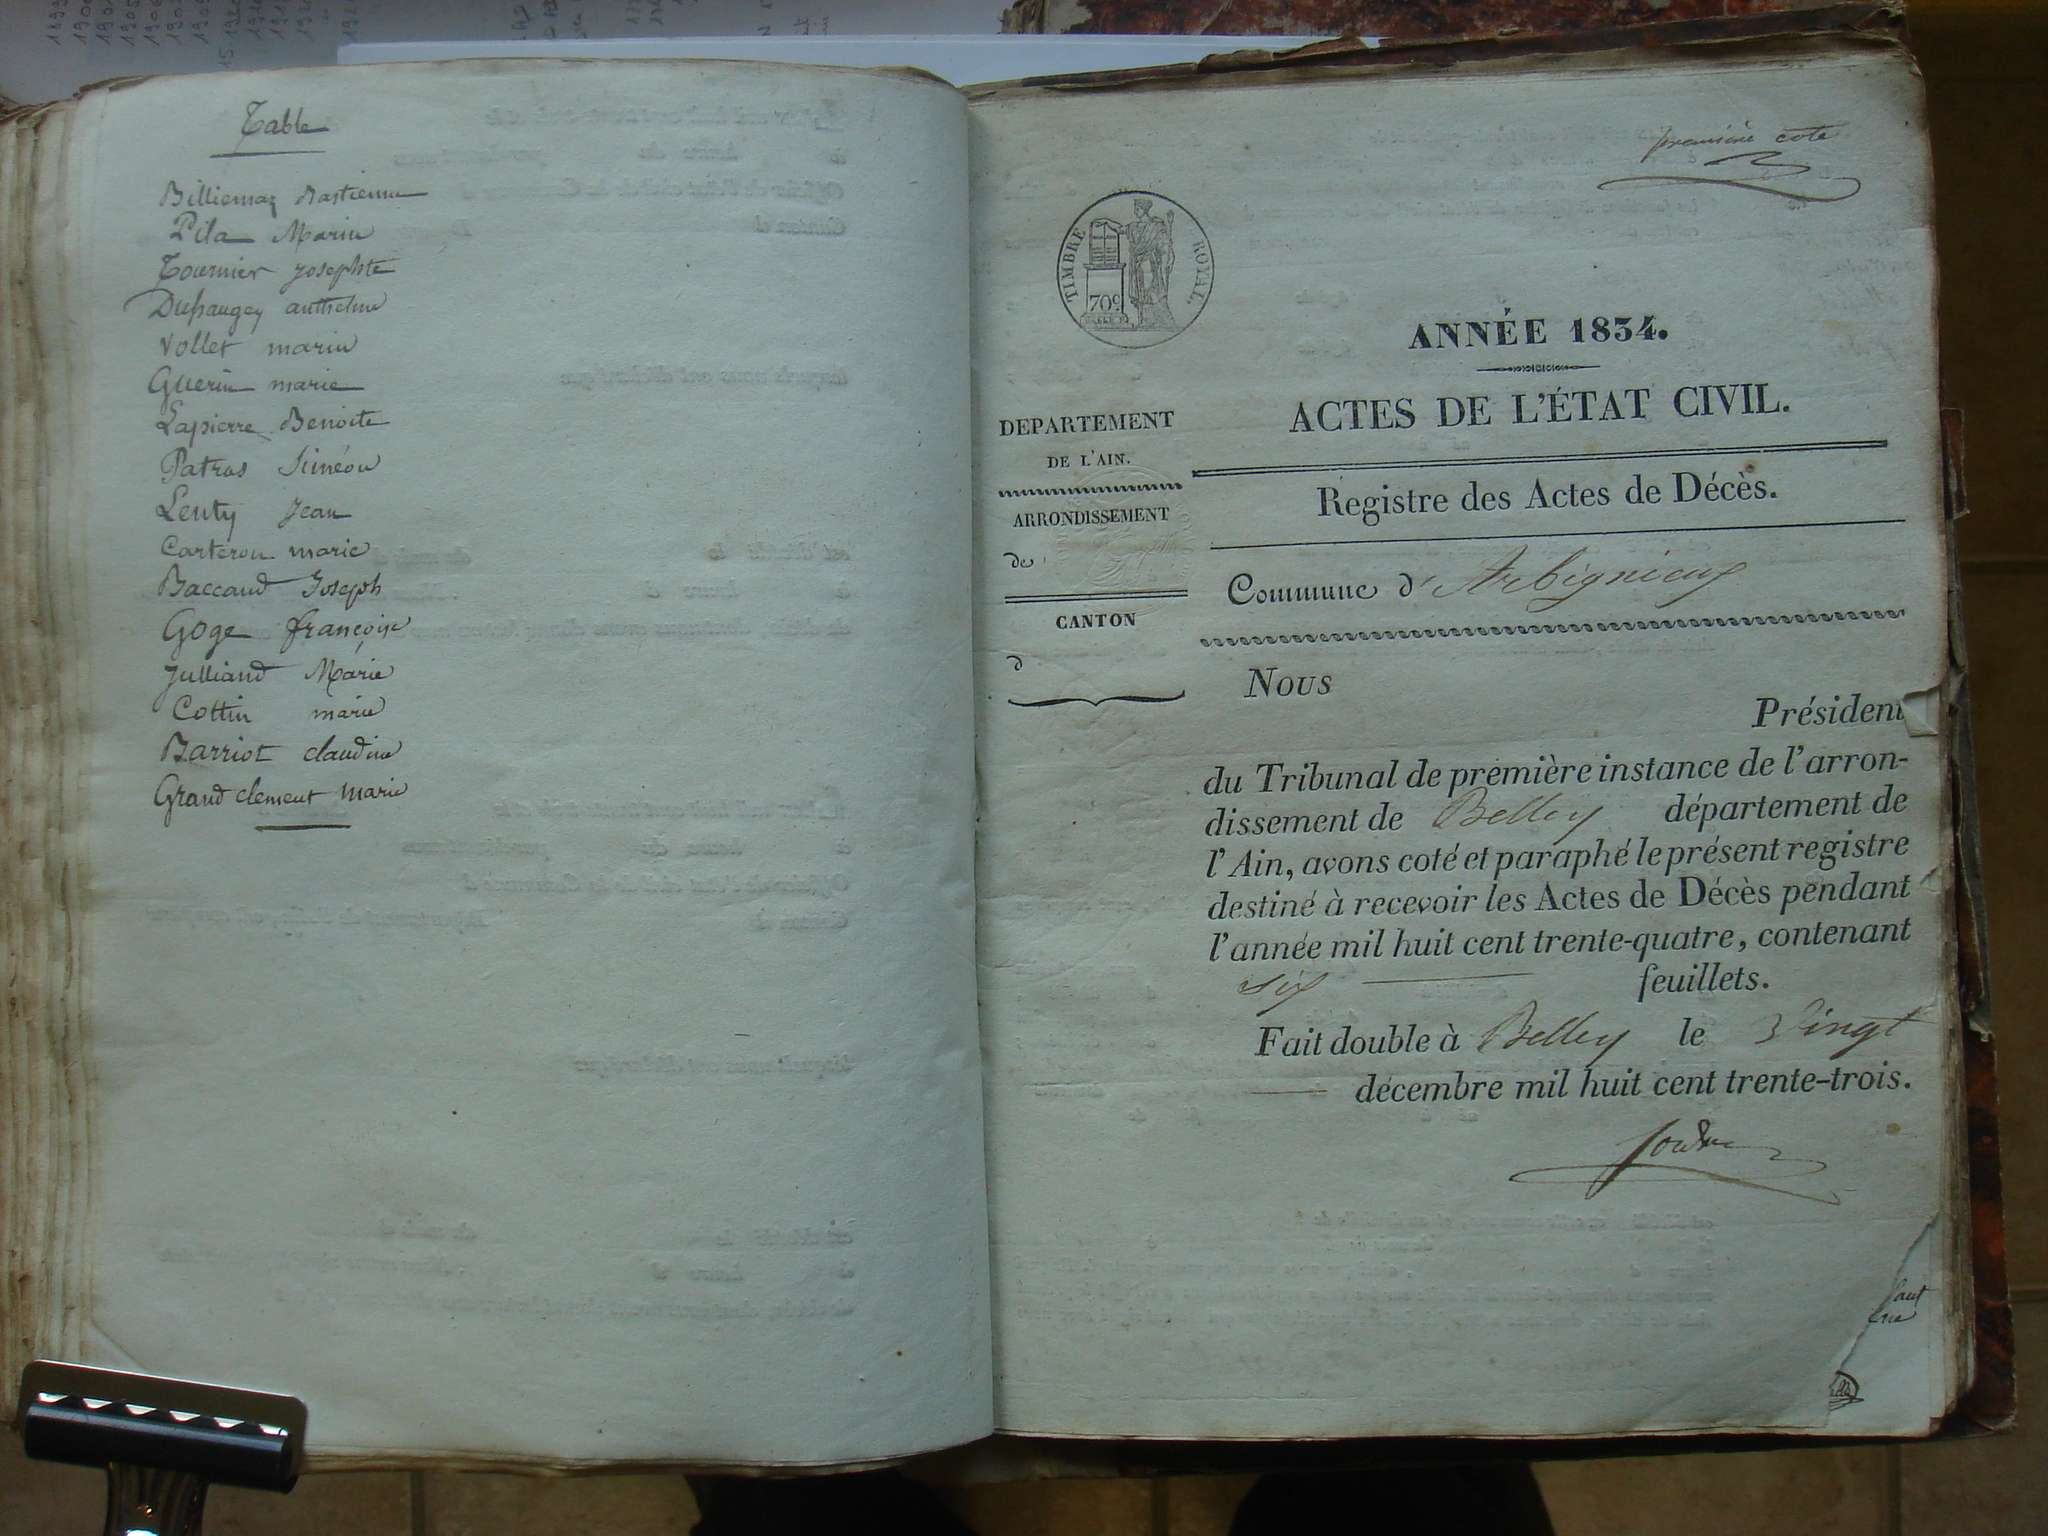 Table
Billiemaz Bastienne
Pila Marie
Tournier Josephte
Dupaugey anthelme
Vollet marie
Guerin marie
Lapierre Benoite
Patras Siméon
Lenty Jean
Carteron marie
Baccand Joseph
Goge françoise
Julliand Marie
Cottin marie
Barriot claudine
Grand clement marie
première cote
TIMBRE ROYAL.
70c
ANNÉE 1834.
ACTES DE L'ÉTAT CIVIL.
DEPARTEMENT
DE L'AIN.
ARRONDISSEMENT
de
CANTON
d
Registre des Actes de Décès.
Commune d'Arbignieux
Nous
Président
du Tribunal de première instance de l'arron-
dissement de Belley département de
l'Ain, avons coté et paraphé le présent registre
destiné à recevoir les Actes de Décès pendant
l'année mil huit cent trente-quatre, contenant
six feuillets.
Fait double à Belley le Vingt
décembre mil huit cent trente-trois.